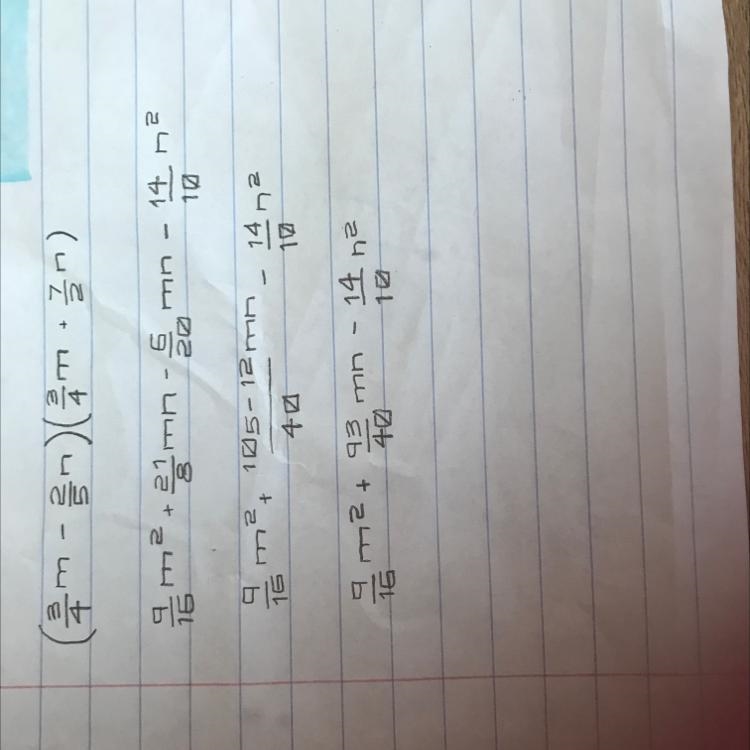 (3/4 m - 2/5 n)(3/4 m + 7/2 n)
9/16 m² + 21/8 mn - 6/20 mn - 14/10 n²
9/16 m² + 105-12/40 mn - 14/10 n²
9/16 m² + 93/40 mn - 14/10 n²